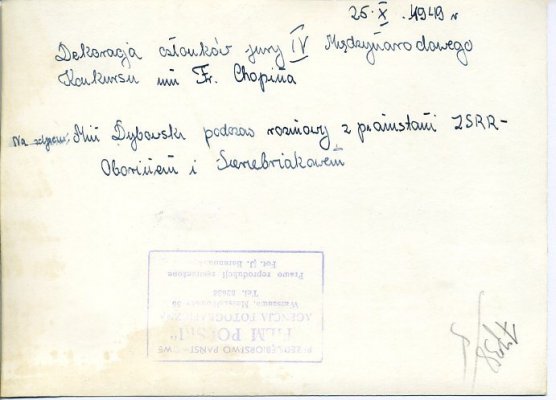 25.X.1949 r
Dekoracja członków jury IV Międzynarodowego
Konkursu im Fr. Chopina
Na zdjęciu: Min Dybowski podczas rozmowy z pianistami ZSRR-
Oborinem i Sierebriakowem
PRZEDSIĘBIORSTWO PAŃSTWOWE
"FILM POLSKI"
AGENCJA FOTOGRAFICZNA
Warszawa,
Tel.
Prawo reprodukcji zastrzeżone
Fot. J.